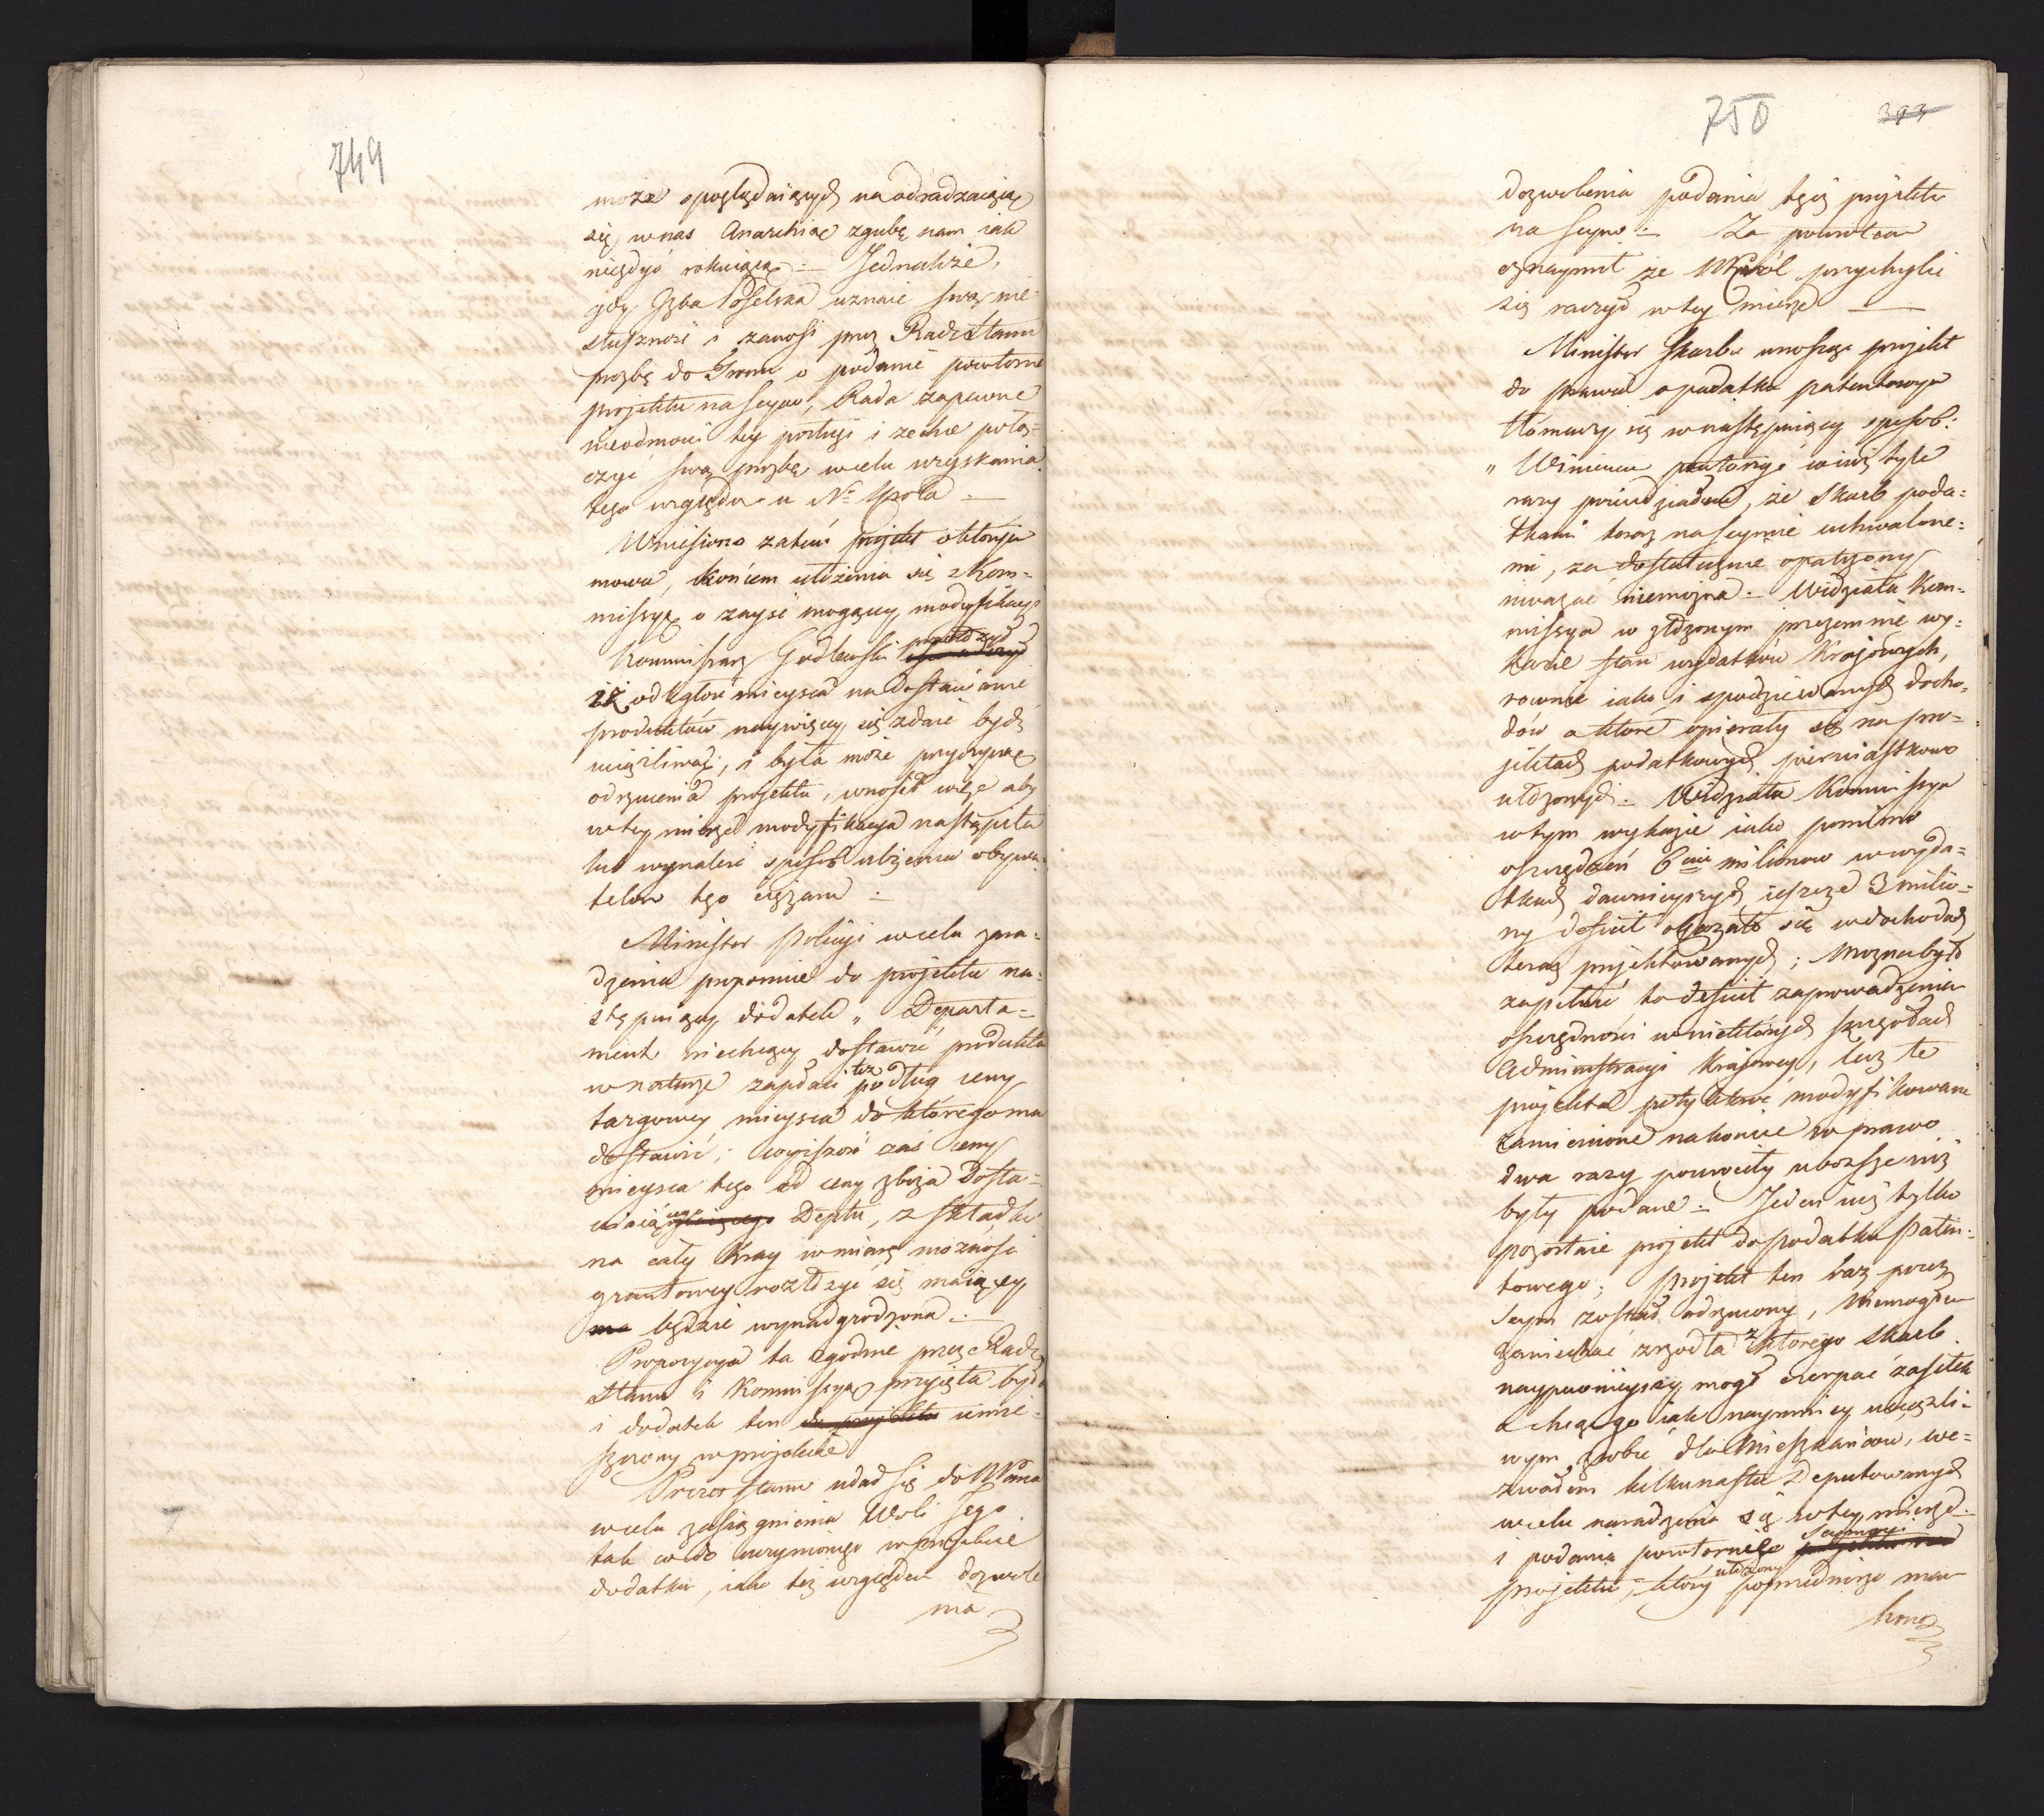 749
może spoglądaiących na odradzaiącą
się, w nas Anarchią zgubę nam iak
niegdyś rokuiącą — Jednakże,
gdy Jzba Poselska uznaie swą nie-
słuszność i zanosi przez Radę Stanu
prożbę do Tronu o podanie powtorne
projektu na Seym, Rada zapewne
nieodmowi tey posługi i zechce połą-
czyć swą prożbę w celu uzyskania
tego względu u No Króla —
Wniesiono zatém projekt o którym
mowa, końcem ułożenia się z Kom-
missyą o zayść mogącey modyfikacyi
Kommissarz Godlewski
iż odległość mieysca na dostawianie
produktów naywięcey się zdaie bydź
uciążliwą, i była może przyczyną
odrzucenia projektu, wnosił więc aby
w tey mierze modyfikacya nastąpiła
lub wynaleść sposób ulżenia obywa-
telom tego ciężaru —
Minister Policyi w celu zara-
dzenia proponuie do projektu na-
stępuiący dodatek „ Departa-
ment niechcący dostawić produkta
w naturze zapłaci też podług ceny
targowey mieysca do którego ma
dostawić; wyższość zaś ceny
mieysca tego od ceny zboża dosta-
wiaiącego Deptu, z składki
na cały Kray w miarę możności
gruntowey rozłożyć się maiącey
ma będzie wynadgrodzona —
Propozycya ta zgodnie przez Radę
Stanu i Kommissyą przyięta była
i dodatek ten do projektu umie-
szczony w projekcie
Prezes Stanu udał się do NPana
w celu zasiągnienia Woli Jego
tak co do uczynionego w projekcie
dodatku, iako też względem dozwole
nia
750
393
dozwolenia podania tegoż projektu
na Seym — Za powrotem
oznaymił że NKról przychylić
się raczył w tey mierze —
Minister Skarbu wnosząc projekt
do prawa o podatku patentowym
tłomaczy się w następuiący sposób:
„ Winienem powtorzyć co iuż tyle
razy powiedziałem, że Skarb poda-
tkami teraz na Seymie uchwalone-
mi, za dostatecznie opatrzony
uważać niemożna — Widziała Kom-
missya w złożonym przezemnie wy-
kazie stan wydatków Krajowych,
rownie iako i spodziewanych docho-
dów a które opierały się na pro-
jektach podatkowych pierwiastkowo
ułożonych — Widziała Kommissya
w tym wykazie iako pomimo
oszczędzeń 6ciu milionow w wyda-
tkach dawnieyszych ieszcze 3 milio-
ny deficit okazało się w dochodach
teraz projektowanych; Można było
zapełnić to deficit zaprowadzenia
oszczędności w niektórych szczegołach
Administracyi Krajowey, lecz te
projekta poty które modyfikowane
zamienione nakoniec w prawo
dwa razy powróciły uboższe niż
były podane — Jeden iuż tylko
pozostaie projekt do podatku Paten-
towego; projekt ten raz przez
Seym został odrzucony, Niemogłem
zaniechać zrzodła z którego Skarb
naypewnieyszy mogł czerpać zasiłek
a chcąc go iak naymniey uciążli-
wym zrobić dla Mieszkańcow, we-
zwałem kilkunastu Deputowanych
w celu naradzenia się w tey mierze
i podania powtornego Seymowi
projektu, który ułożony poprzedniczo man
kono